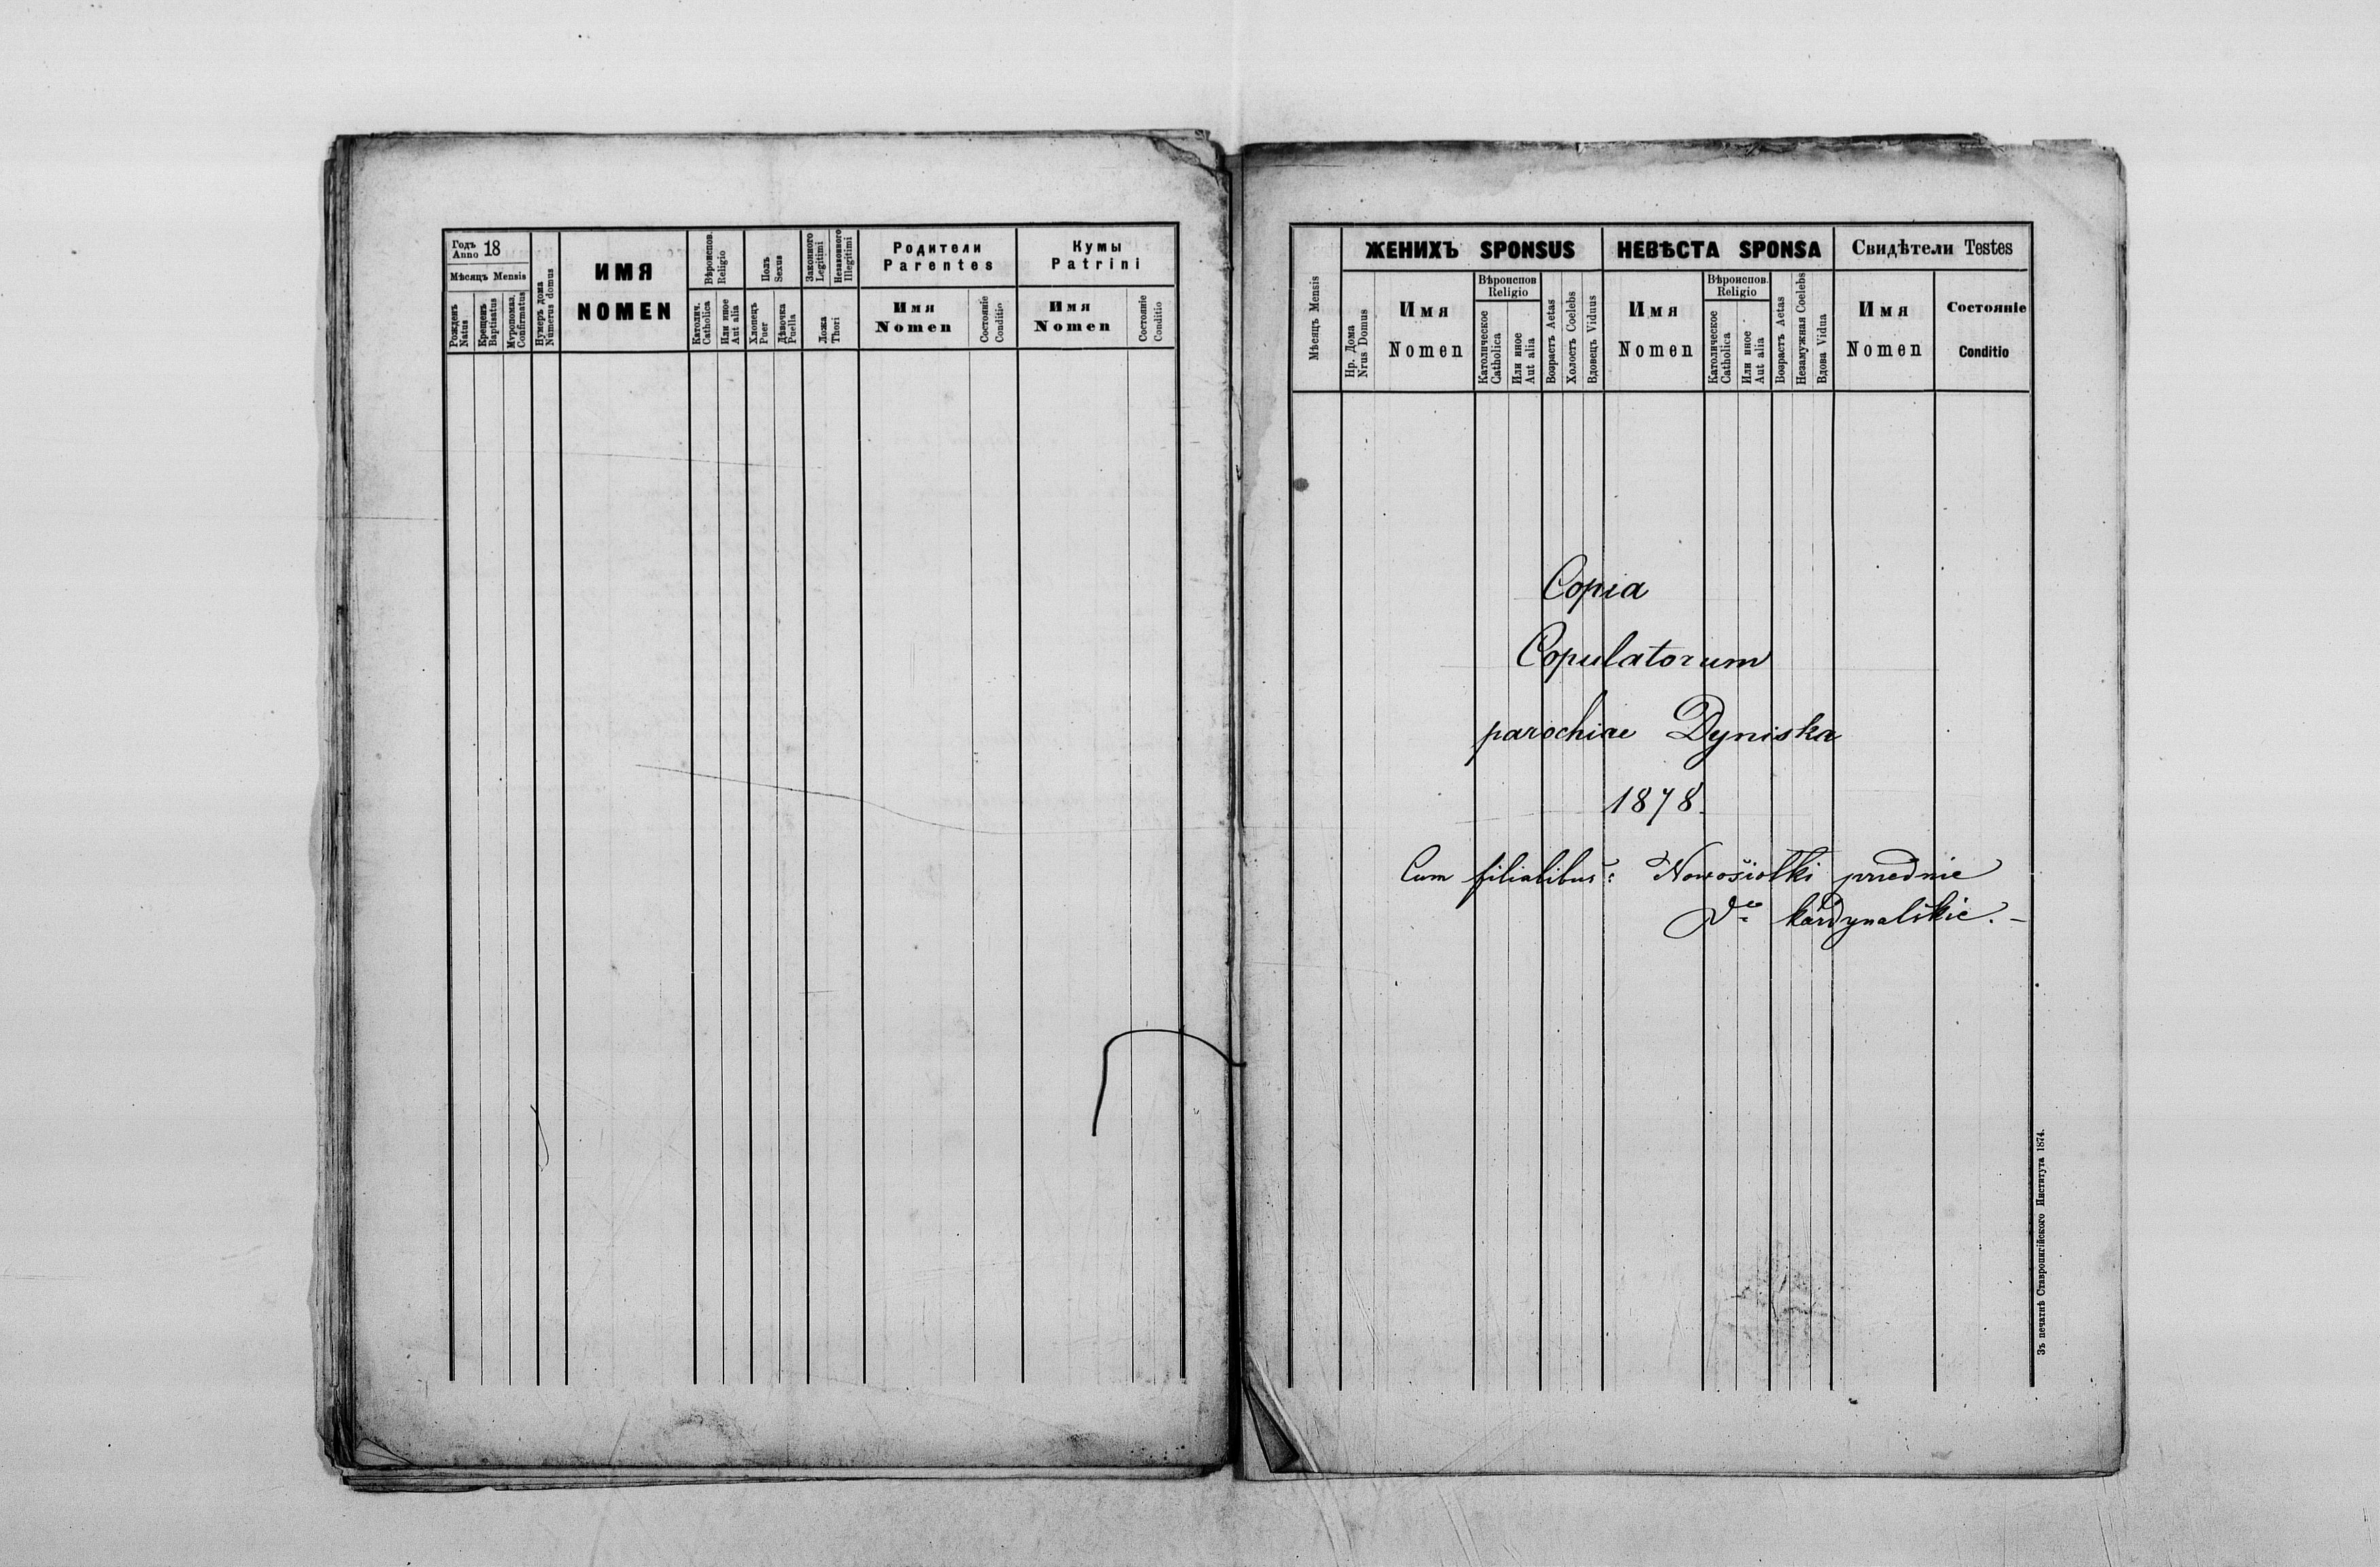 Годъ Anno 18
Мѣсяцъ Mensis
Рожденъ Natus
Крещенъ Baptisatus
Мѵропомаз. Confirmatus
Нумеръ дома Numerus domus
ИМЯ
NOMEN
Вѣроиспов. Religio
Католич. Catholica
Или иное Aut alia
Полъ Sexus
Хлопецъ Puer
Дѣвочка Puella
Законного Legitimi
Незаконного Illegitimi
Ложа Thori
Родители
Parentes
Имя
Nomen
Состояніе Conditio
Кумы
Patrini
Имя
Nomen
Состояніе Conditio
Мѣсяцъ Mensis
ЖЕНИХЪ SPONSUS
Нр. Дома Nrus Domus
Имя
Nomen
Вѣроиспов
Religio
Католическое Catholica
Или иное Aut alia
Возрастъ Aetas
Холостъ Coelebs
Вдовецъ Viduus
НЕВѢСТА SPONSA
Имя
Nomen
Вѣроиспов.
Religio
Католическое Catholica
Или иное Aut alia
Возрастъ Aetas
Незамужная Coelebs
Вдова Vidua
Свидѣтели Testes
Имя
Nomen
Состояніе
Conditio
Copia
Copulatorum
parochiae Dyniska
1878.
Cum filialibus: Nowosiołki przednie
dto kardynalskie. –
Зъ печатнѣ Ставропигійского Института 1874.